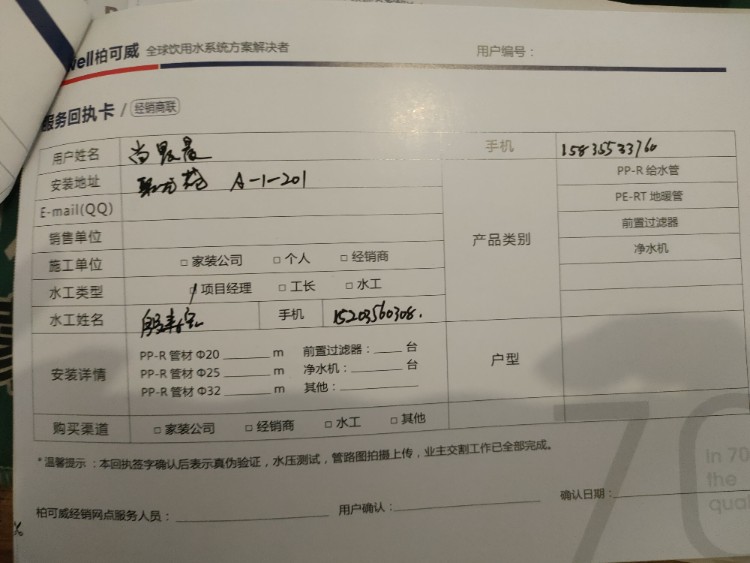 well柏可威 全球饮用水系统方案解决者 用户编号：
服务回执卡 / 经销商联
用户姓名 尚晨晨 手机 15835533760
安装地址 A-1-201 PP-R 给水管
E-mail(QQ) PE-RT 地暖管
销售单位 产品类别 前置过滤器
施工单位 □ 家装公司 □ 个人 □ 经销商 净水机
水工类型 □ 项目经理 □ 工长 □ 水工
水工姓名 手机 15203560308.
安装详情 户型
PP-R 管材 Φ20 ______ m 前置过滤器：____ 台
PP-R 管材 Φ25 ______ m 净水机：____ 台
PP-R 管材 Φ32 ______ m 其他：________
购买渠道 □ 家装公司 □ 经销商 □ 水工 □ 其他
*温馨提示：本回执签字确认后表示真伪验证，水压测试，管路图拍摄上传，业主交割工作已全部完成。
柏可威经销网点服务人员：________ 用户确认：________ 确认日期：________
70
In 70
the
qua